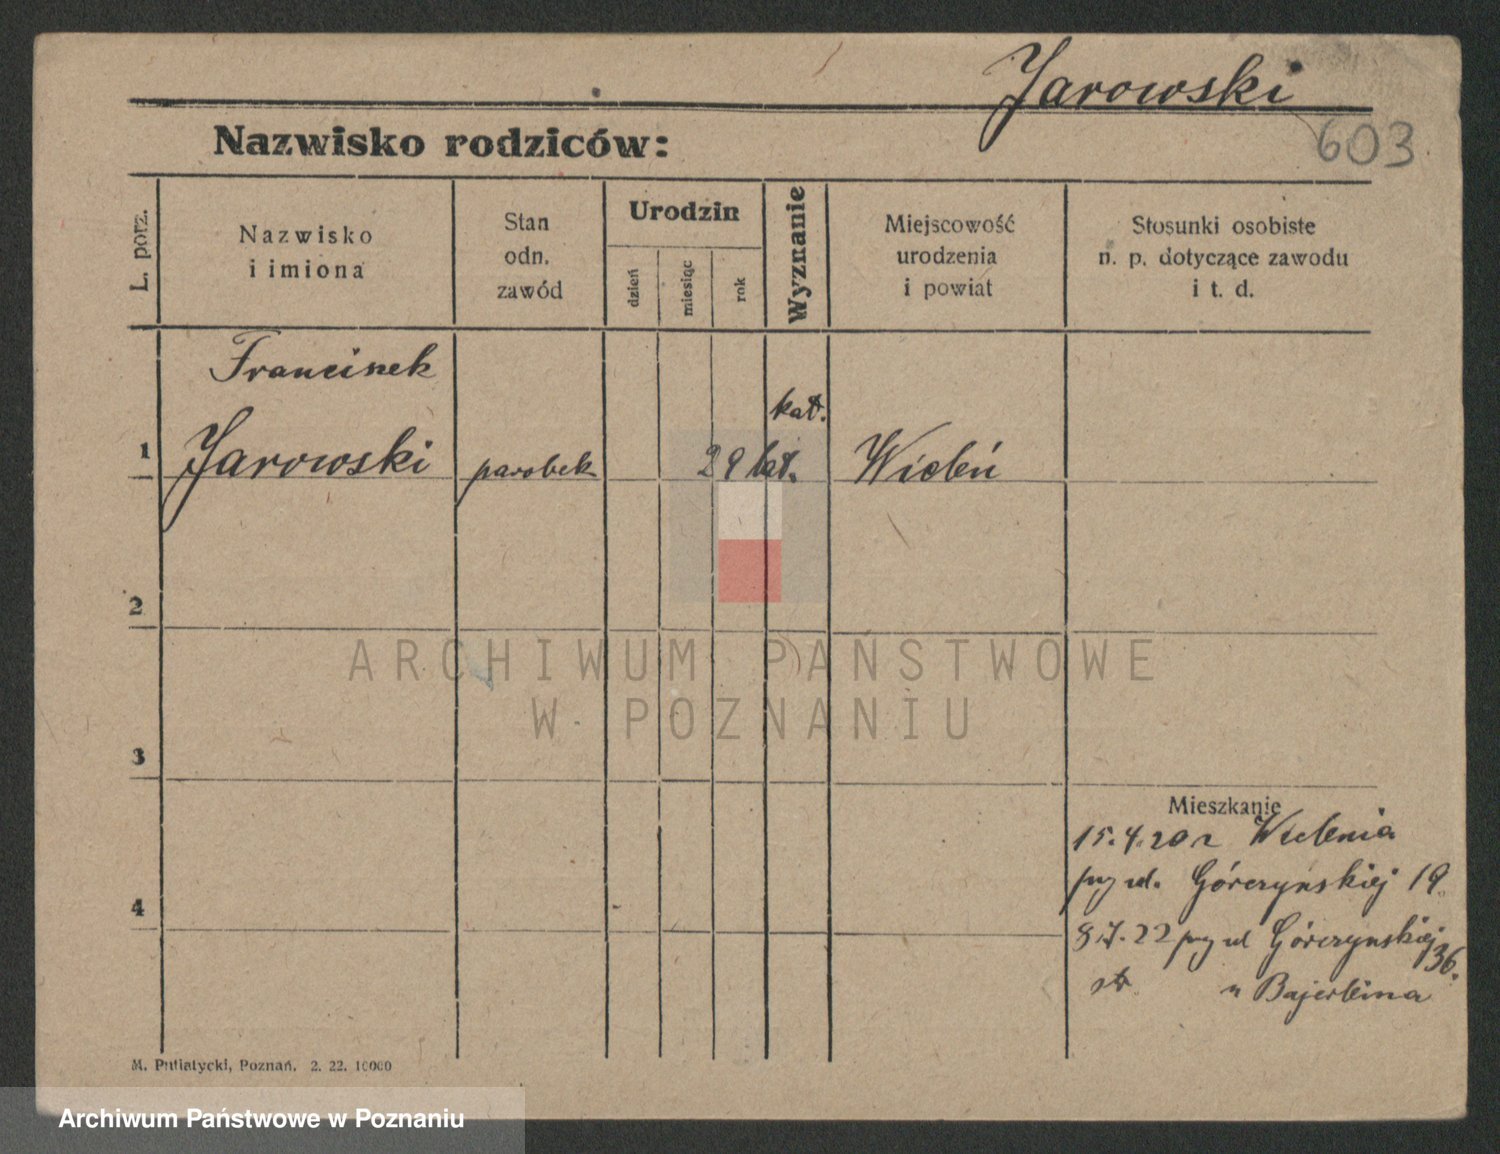 Jarowski
603
Nazwisko rodziców:
L. porz.
Nazwisko
i imiona
Stan
odn.
zawód
Urodzin
dzień
miesiąc
rok
Wyznanie
Miejscowość
urodzenia
i powiat
Stosunki osobiste
n. p. dotyczące zawodu
i t. d.
1
Franciszek
Jarowski
parobek
29 lat.
kat.
Wieleń
2
3
4
Mieszkanie
15.4.20 z Wielenia
przy ul. Górczyńskiej 19.
8.7.22 przy ul Górczynskiej 36.
u Bajerleina
M. Putiatycki, Poznań. 2. 22. 10000
ARCHIWUM PAŃSTWOWE
W POZNANIU
Archiwum Państwowe w Poznaniu